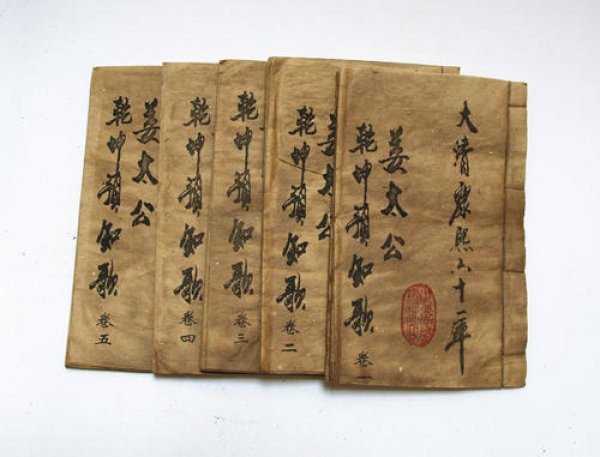 大清康熙六十一年
姜太公
乾坤預知歌 卷一
姜太公
乾坤預知歌 卷二
乾坤預知歌 卷三
乾坤預知歌 卷四
姜太公
乾坤預知歌 卷五